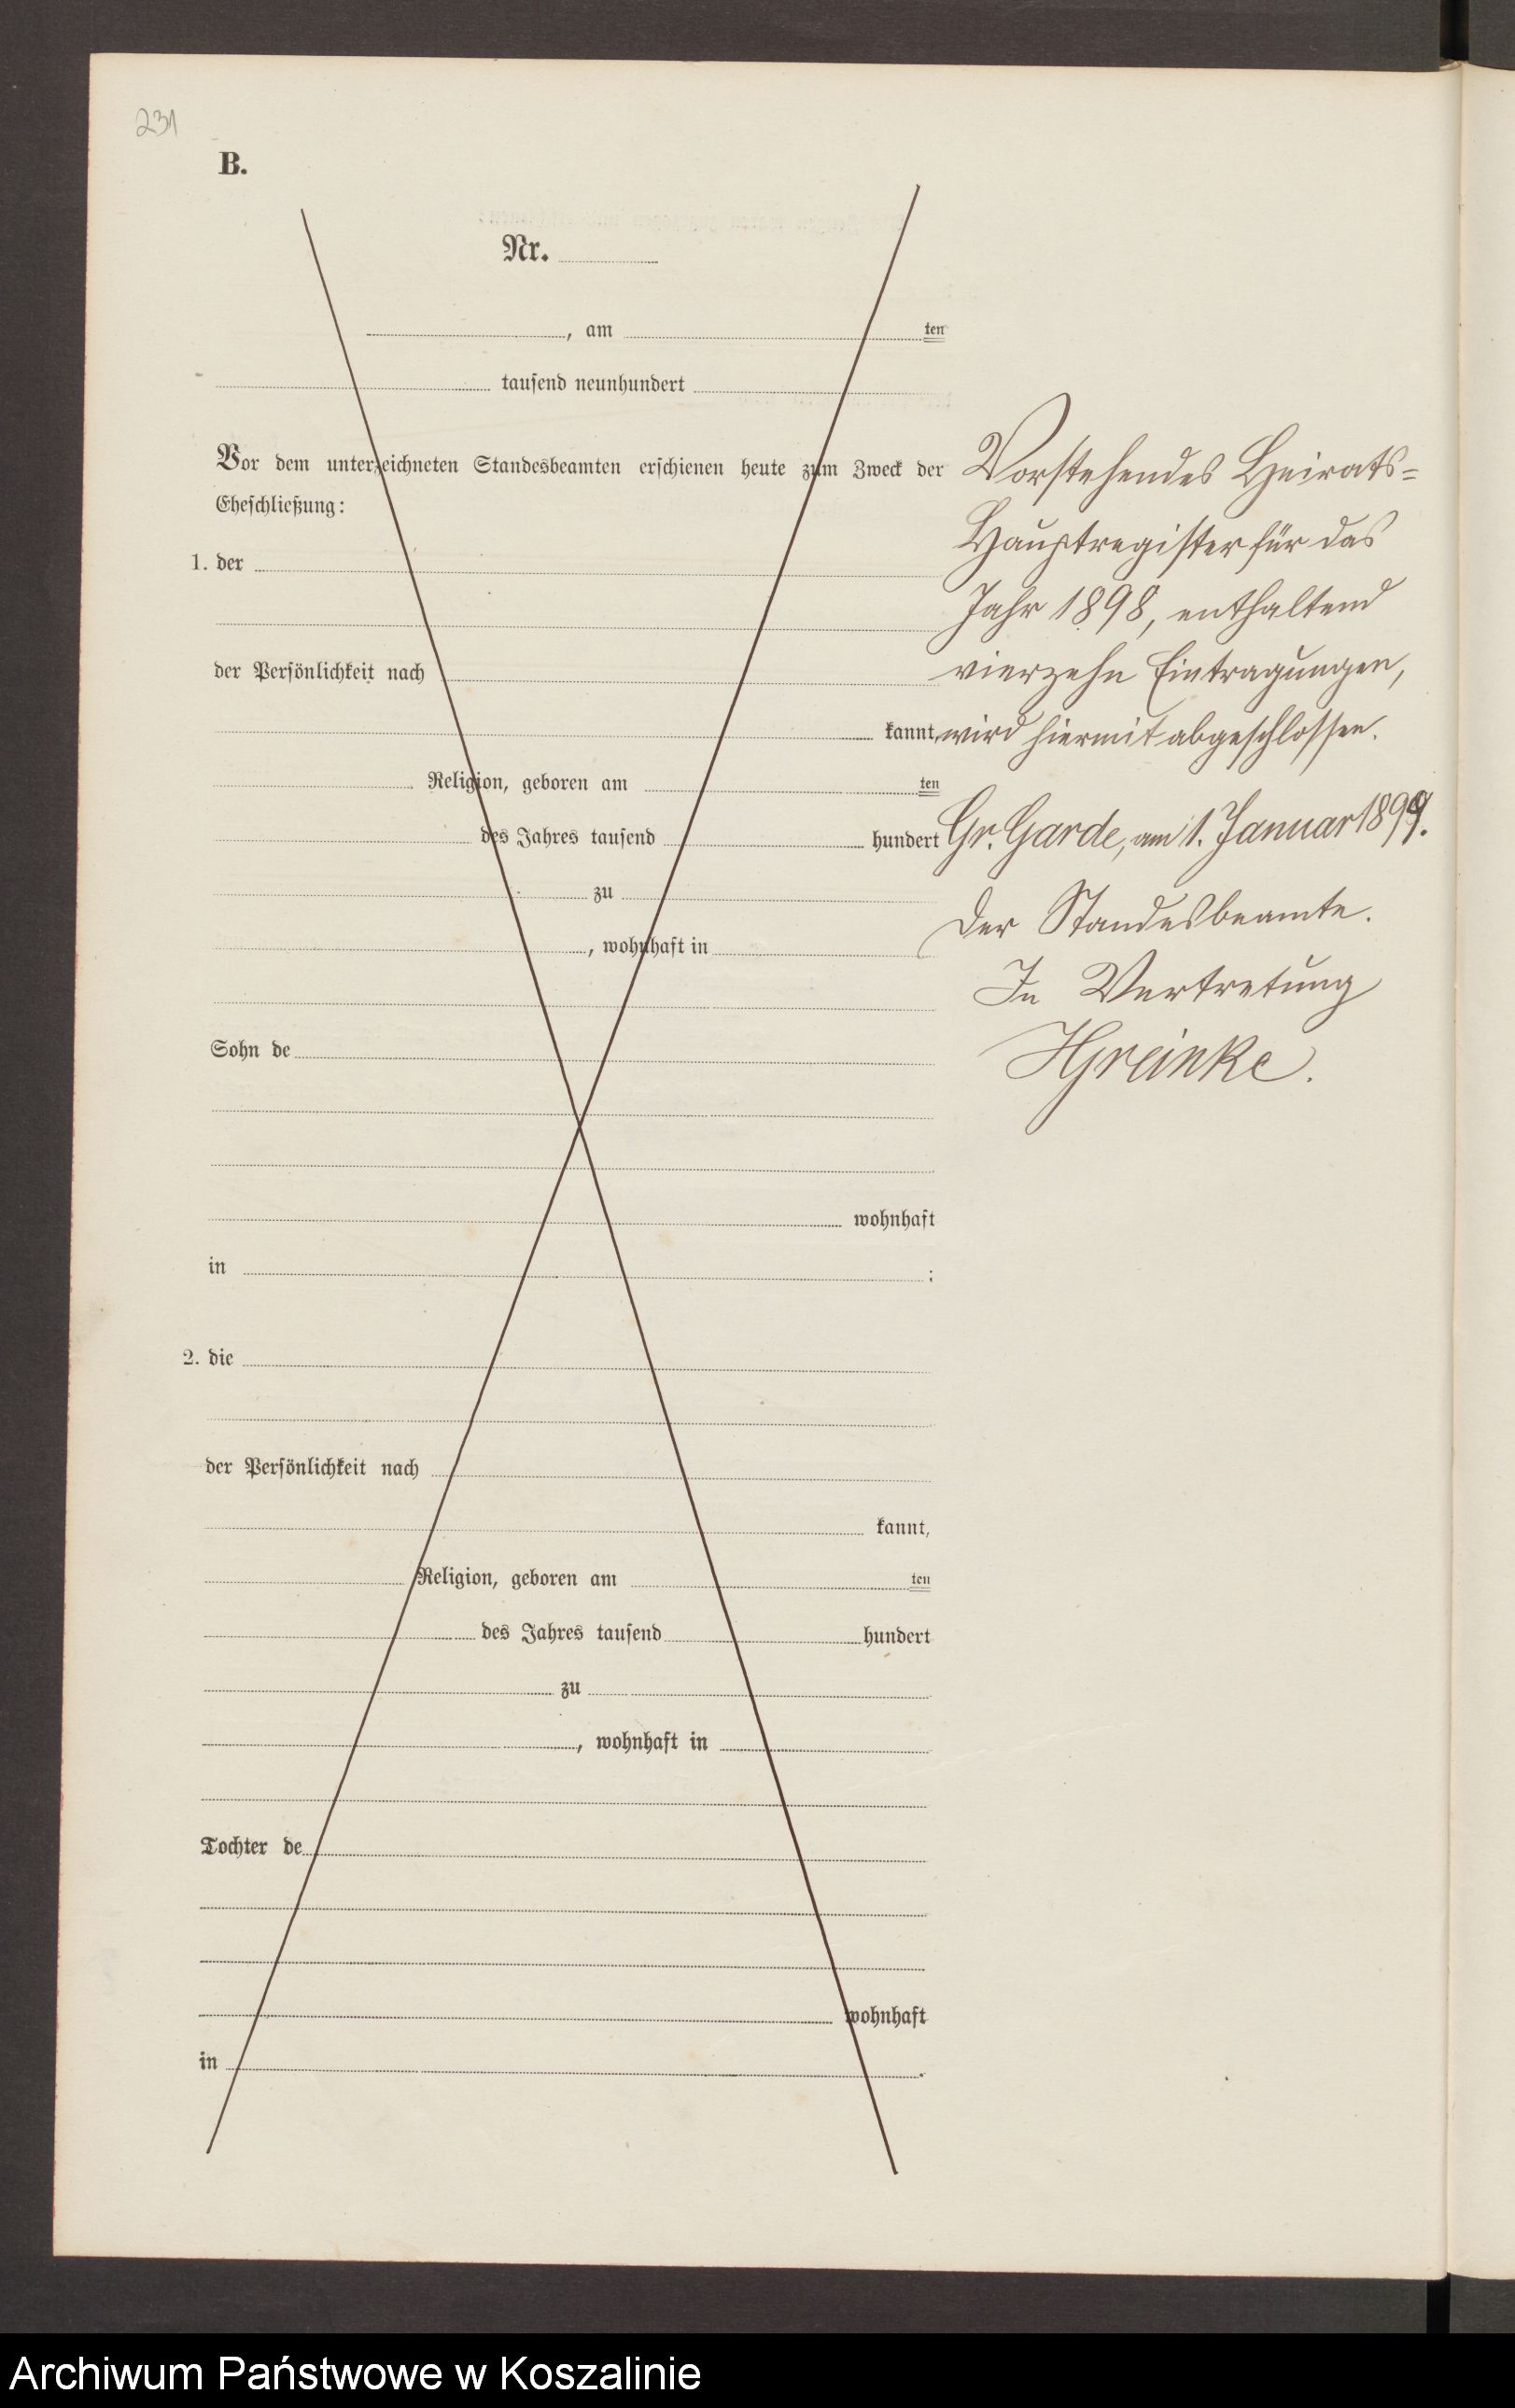 231
B.
Nr.
, am ten
tausend neunhundert
Vor dem unterzeichneten Standesbeamten erschienen heute zum Zweck der
Eheschließung:
1. der
der Persönlichkeit nach
kannt,
Religion, geboren am ten
des Jahres tausend hundert
zu
, wohnhaft in
Sohn de
wohnhaft
in ;
2. die
der Persönlichkeit nach
kannt,
Religion, geboren am ten
des Jahres tausend hundert
zu
, wohnhaft in
Tochter de
wohnhaft
in .
Vorstehendes Heirats=
Hauptregister für das
Jahr 1898, enthaltend
vierzehn Eintragungen,
wird hiermit abgeschlossen.
Gr. Garde, am 1. Januar 1899.
Der Standesbeamte.
In Vertretung
HGreinke.
Archiwum Państwowe w Koszalinie